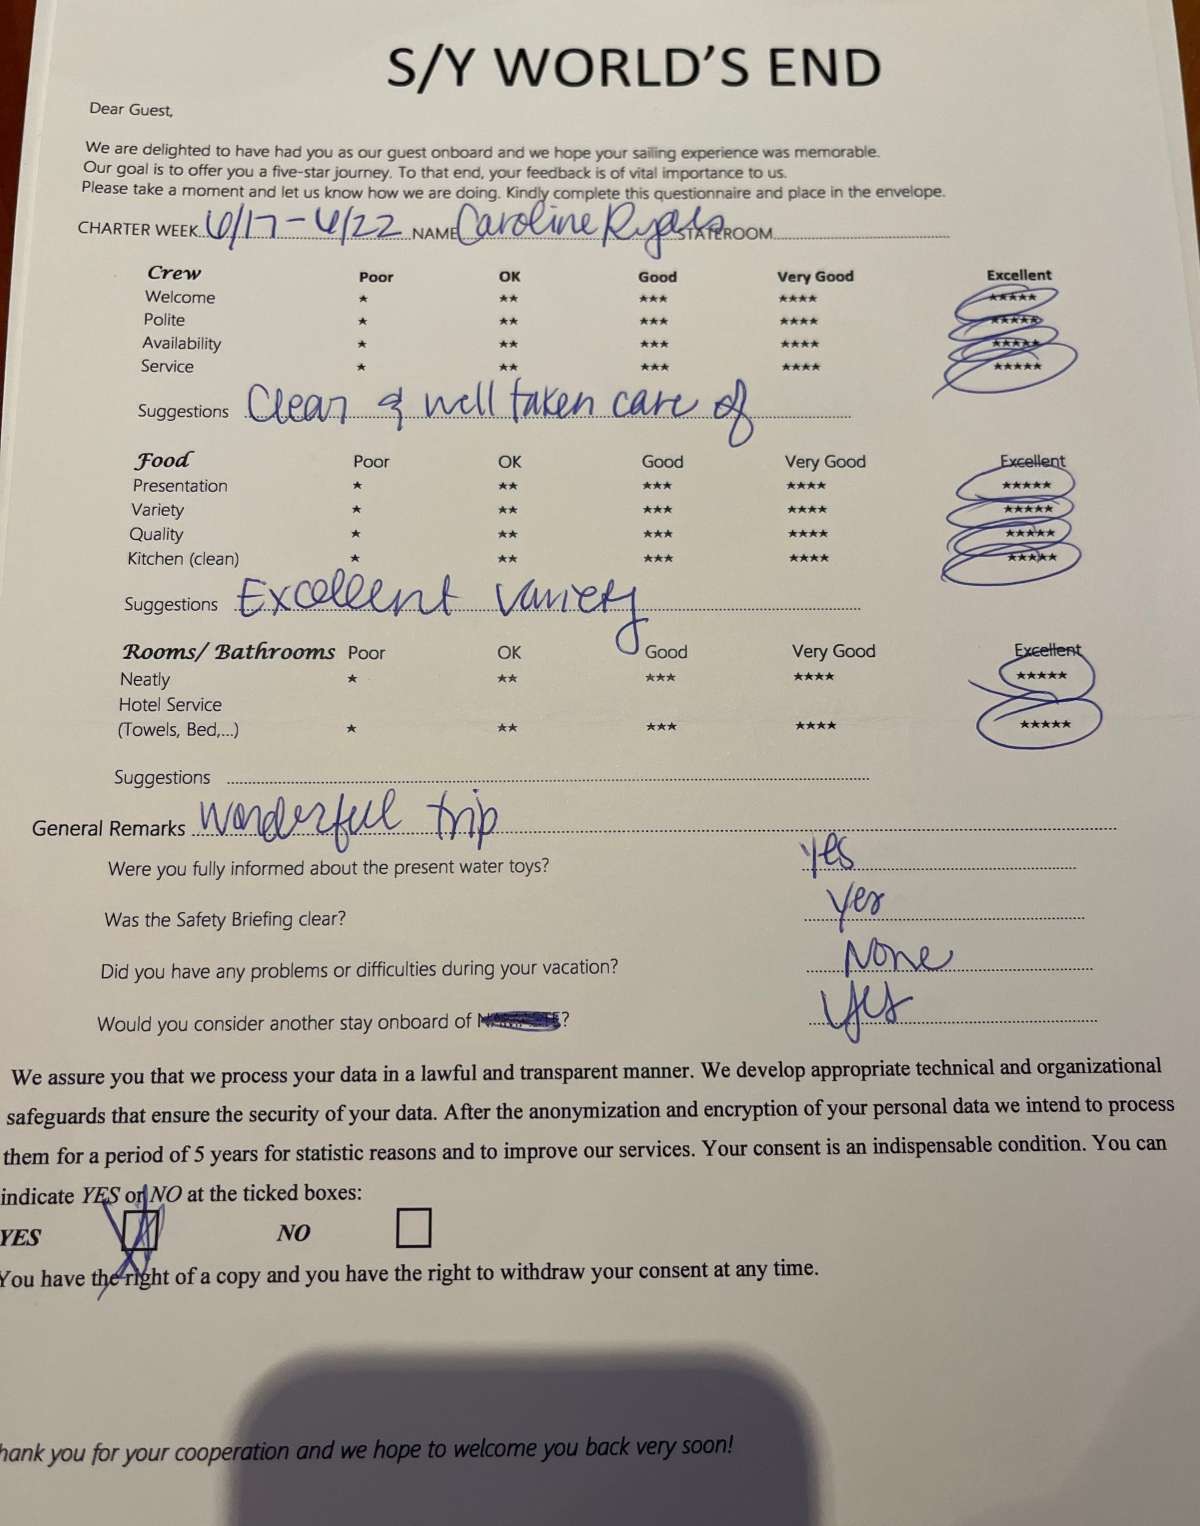 S/Y WORLD'S END
Dear Guest,
We are delighted to have had you as our guest onboard and we hope your sailing experience was memorable.
Our goal is to offer you a five-star journey. To that end, your feedback is of vital importance to us.
Please take a moment and let us know how we are doing. Kindly complete this questionnaire and place in the envelope.
CHARTER WEEK 6/17-6/22 NAME Caroline Ryals STATEROOM
Crew Poor OK Good Very Good Excellent
Welcome ★ ★★ ★★★ ★★★★ ★★★★★
Polite ★ ★★ ★★★ ★★★★ ★★★★★
Availability ★ ★★ ★★★ ★★★★ ★★★★★
Service ★ ★★ ★★★ ★★★★ ★★★★★
Suggestions Clean & well taken care of
Food Poor OK Good Very Good Excellent
Presentation ★ ★★ ★★★ ★★★★ ★★★★★
Variety ★ ★★ ★★★ ★★★★ ★★★★★
Quality ★ ★★ ★★★ ★★★★ ★★★★★
Kitchen (clean) ★ ★★ ★★★ ★★★★ ★★★★★
Suggestions Excellent variety
Rooms/ Bathrooms Poor OK Good Very Good Excellent
Neatly ★ ★★ ★★★ ★★★★ ★★★★★
Hotel Service
(Towels, Bed,...) ★ ★★ ★★★ ★★★★ ★★★★★
Suggestions
General Remarks Wonderful trip
Were you fully informed about the present water toys? yes
Was the Safety Briefing clear? yes
Did you have any problems or difficulties during your vacation? None
Would you consider another stay onboard of ? yes
We assure you that we process your data in a lawful and transparent manner. We develop appropriate technical and organizational
safeguards that ensure the security of your data. After the anonymization and encryption of your personal data we intend to process
them for a period of 5 years for statistic reasons and to improve our services. Your consent is an indispensable condition. You can
indicate YES or NO at the ticked boxes:
YES NO
You have the right of a copy and you have the right to withdraw your consent at any time.
hank you for your cooperation and we hope to welcome you back very soon!